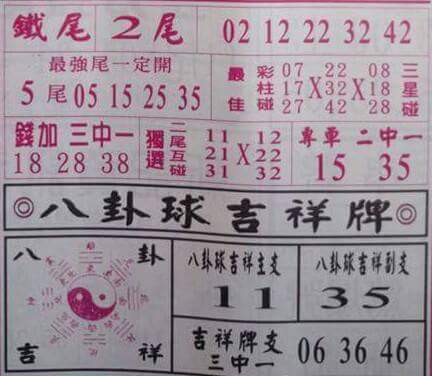 鐵尾 2尾 02 12 22 32 42
最強尾一定開
5尾 05 15 25 35
最佳 彩柱碰 07 22 08 三星碰
17 X 32 X 18
27 42 28
錢加 三中一
18 28 38
獨選 二尾互碰 11 12
21 X 22
31 32
專車 二中一
15 35
◎八卦球吉祥牌◎
八卦
吉祥
八卦球吉祥主支
11
八卦球吉祥副支
35
吉祥牌支
三中一
06 36 46